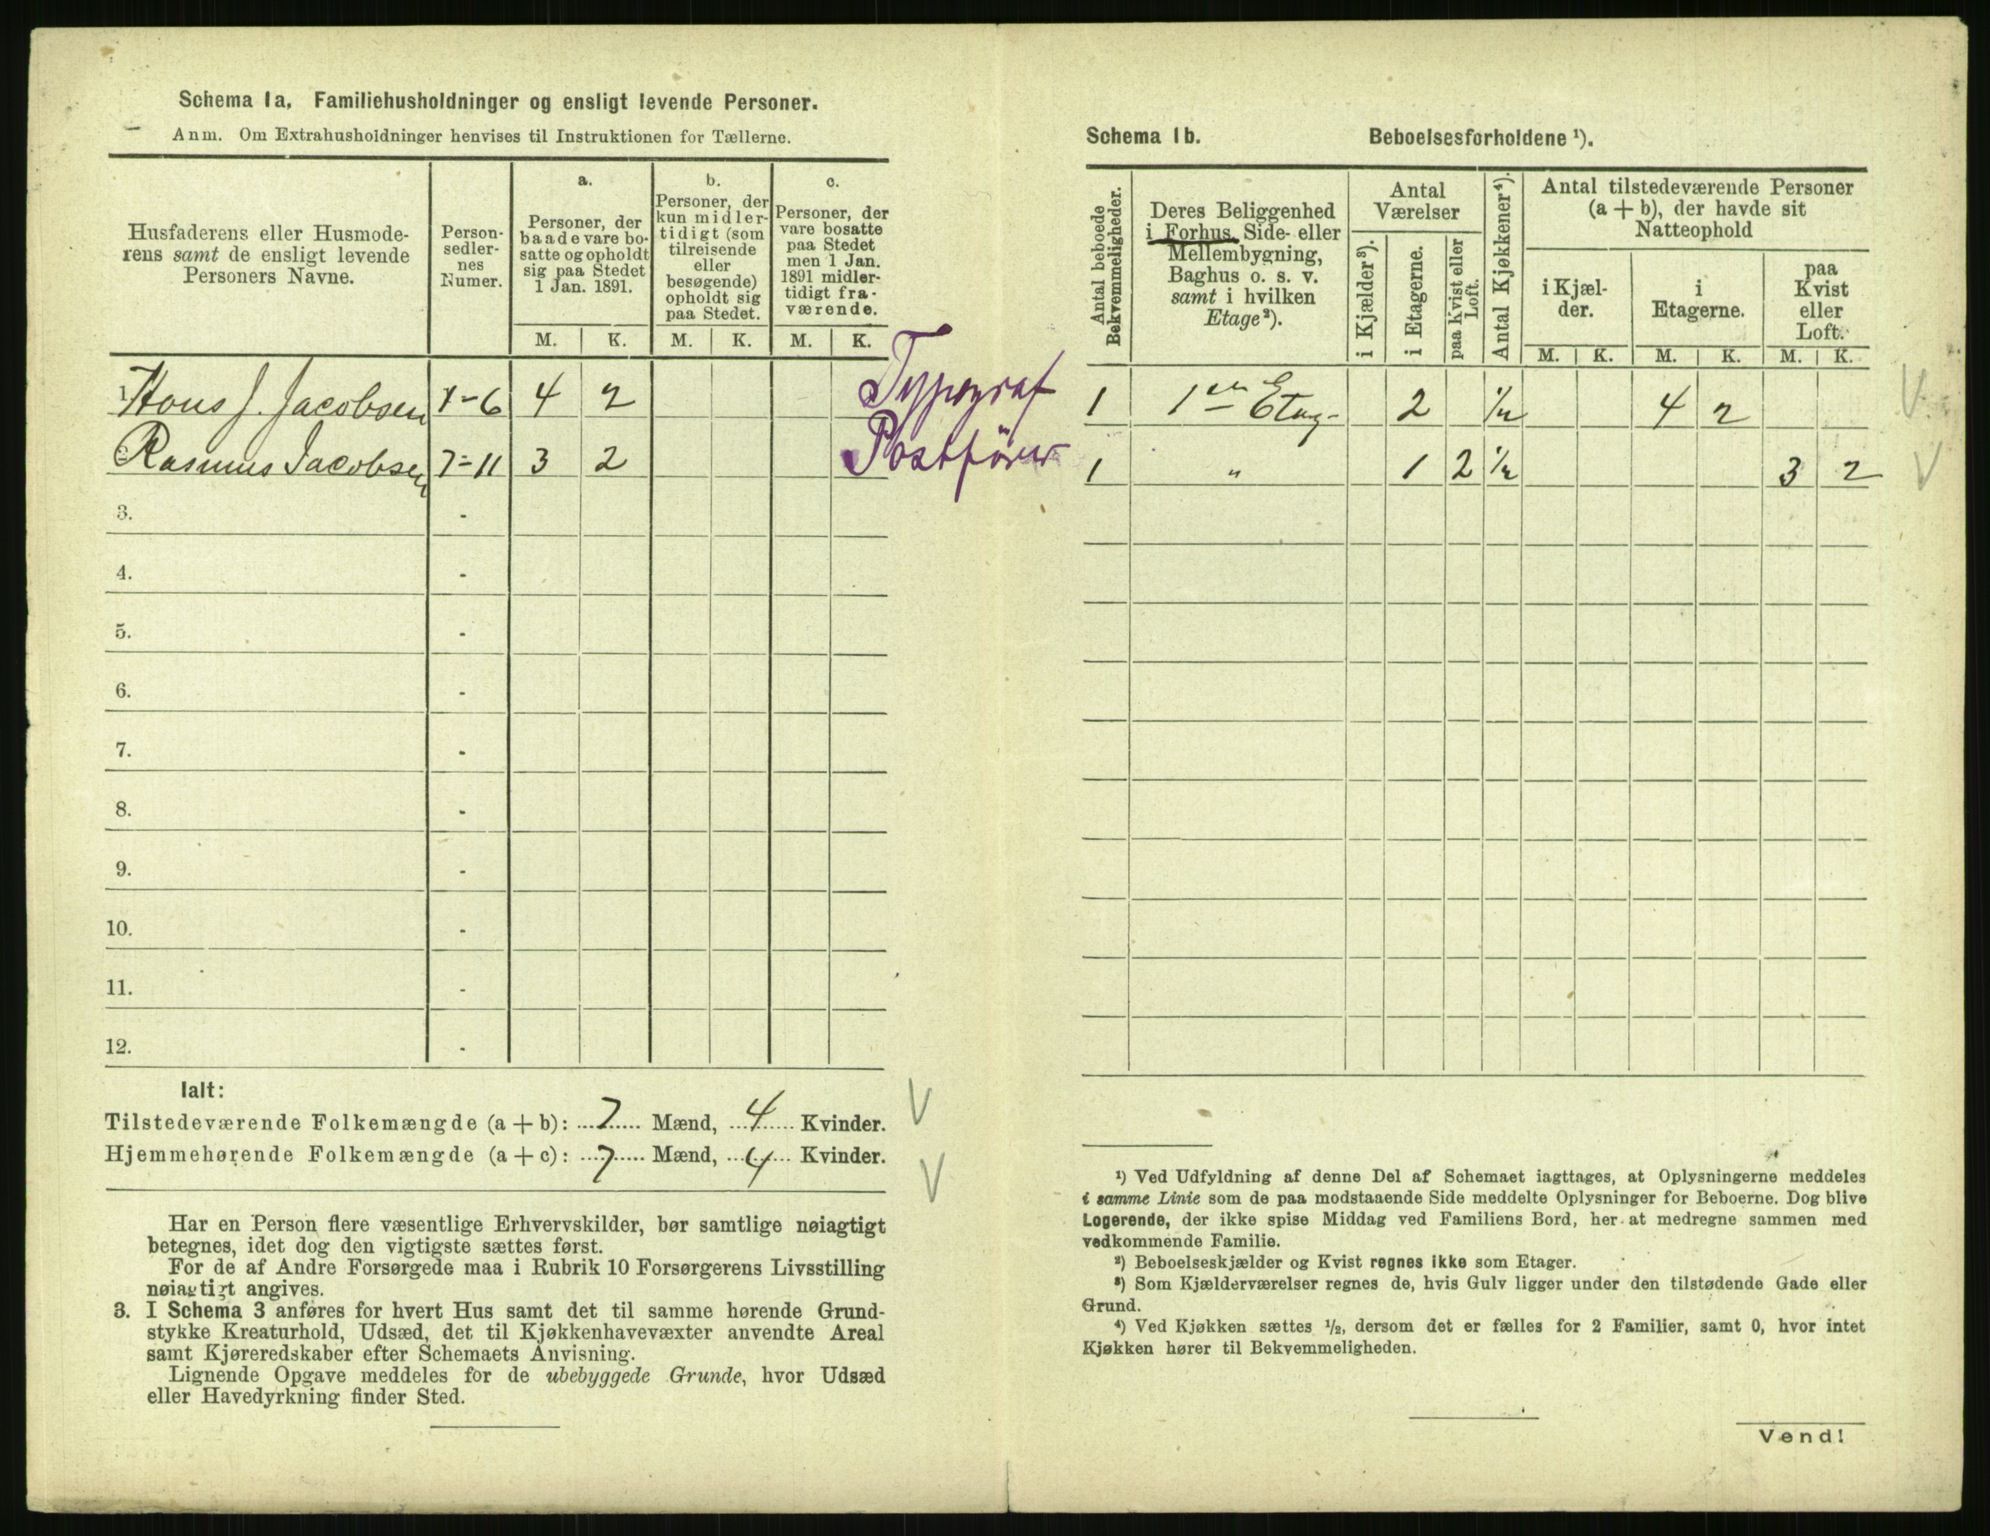 Schema 1a. Familiehusholdninger og ensligt levende Personer.
Anm. Om Extrahusholdninger henvises til Instruktionen for Tællerne.
Husfaderens eller Husmode-
rens samt de ensligt levende
Personers Navne.
Person-
sedler-
nes
Numer.
a.
Personer, der
baade vare bo-
satte og opholdt
sig paa Stedet
1 Jan. 1891.
b.
Personer, der
kun midler-
tidigt (som
tilreisende
eller
besøgende)
opholdt sig
paa Stedet.
c.
Personer, der
vare bosatte
paa Stedet
men 1 Jan.
1891 midler-
tidigt fra-
værende.
M. K. M. K. M. K.
1. Hans J. Jacobsen 1-6 4 2 Typograf
2. Rasmus Jacobsen 7-11 3 2 Postfører
3. -
4. -
5. -
6. -
7. -
8. -
9. -
10. -
11. -
12. -
Ialt:
Tilstedeværende Folkemængde (a + b): 7 Mænd, 4 Kvinder.
Hjemmehørende Folkemængde (a + c): 7 Mænd, 4 Kvinder.
Har en Person flere væsentlige Erhvervskilder, bør samtlige nøiagtigt
betegnes, idet dog den vigtigste sættes først.
For de af Andre Forsørgede maa i Rubrik 10 Forsørgerens Livsstilling
nøiagtigt angives.
3. I Schema 3 anføres for hvert Hus samt det til samme hørende Grund-
stykke Kreaturhold, Udsæd, det til Kjøkkenhavevæxter anvendte Areal
samt Kjøreredskaber efter Schemaets Anvisning.
Lignende Opgave meddeles for de ubebyggede Grunde, hvor Udsæd
eller Havedyrkning finder Sted.
Schema 1b. Beboelsesforholdene ¹).
Antal beboede
Bekvemmeligheder.
Deres Beliggenhed
i Forhus, Side- eller
Mellembygning,
Baghus o. s. v.
samt i hvilken
Etage²).
Antal
Værelser
i Kjælder³).
i Etagerne.
paa Kvist eller
Loft.
Antal Kjøkkener⁴).
Antal tilstedeværende Personer
(a + b), der havde sit
Natteophold
i Kjæl-
der.
i
Etagerne.
paa
Kvist
eller
Loft.
M. K. M. K. M. K.
1 1en Etag- 2 ½ 4 2
1 " 1 2 ½ 3 2
¹) Ved Udfyldning af denne Del af Schemaet iagttages, at Oplysningerne meddeles
i samme Linie som de paa modstaaende Side meddelte Oplysninger for Beboerne. Dog blive
Logerende, der ikke spise Middag ved Familiens Bord, her at medregne sammen med
vedkommende Familie.
²) Beboelseskjælder og Kvist regnes ikke som Etager.
³) Som Kjælderværelser regnes de, hvis Gulv ligger under den tilstødende Gade eller
Grund.
⁴) Ved Kjøkken sættes ½, dersom det er fælles for 2 Familier, samt 0, hvor intet
Kjøkken hører til Bekvemmeligheden.
Vend!